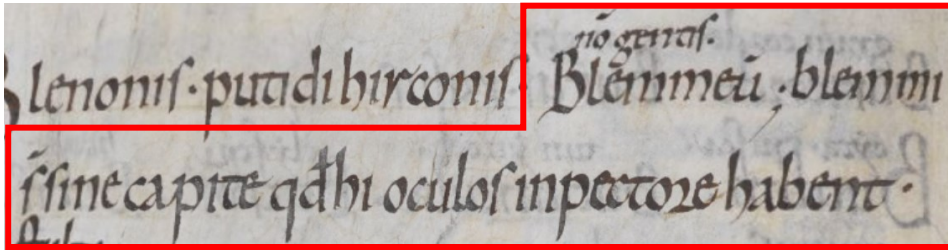 lenonis · putidi hirconis · Blemmeū ; blemmi
nō gentis ·
s̄ sine capite qđ hi oculos in pectore habent ·